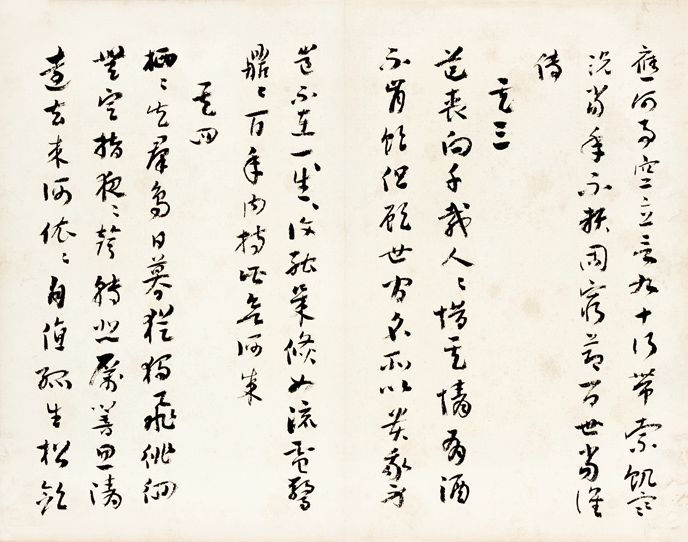 應何事空立言九十行帶索飢寒
況當年不賴固窮節百世當誰
傳
其三
道喪向千載人〻惜其情有酒
不肯飲但顧世間名所以貴我身
豈不在一生〻復能幾倏如流電驚
鼎〻百年內持此欲何成
其四
栖〻失群鳥日暮猶獨飛徘徊
無定指夜〻聲轉悲厲響思清
遠去來何依〻因值孤生松斂